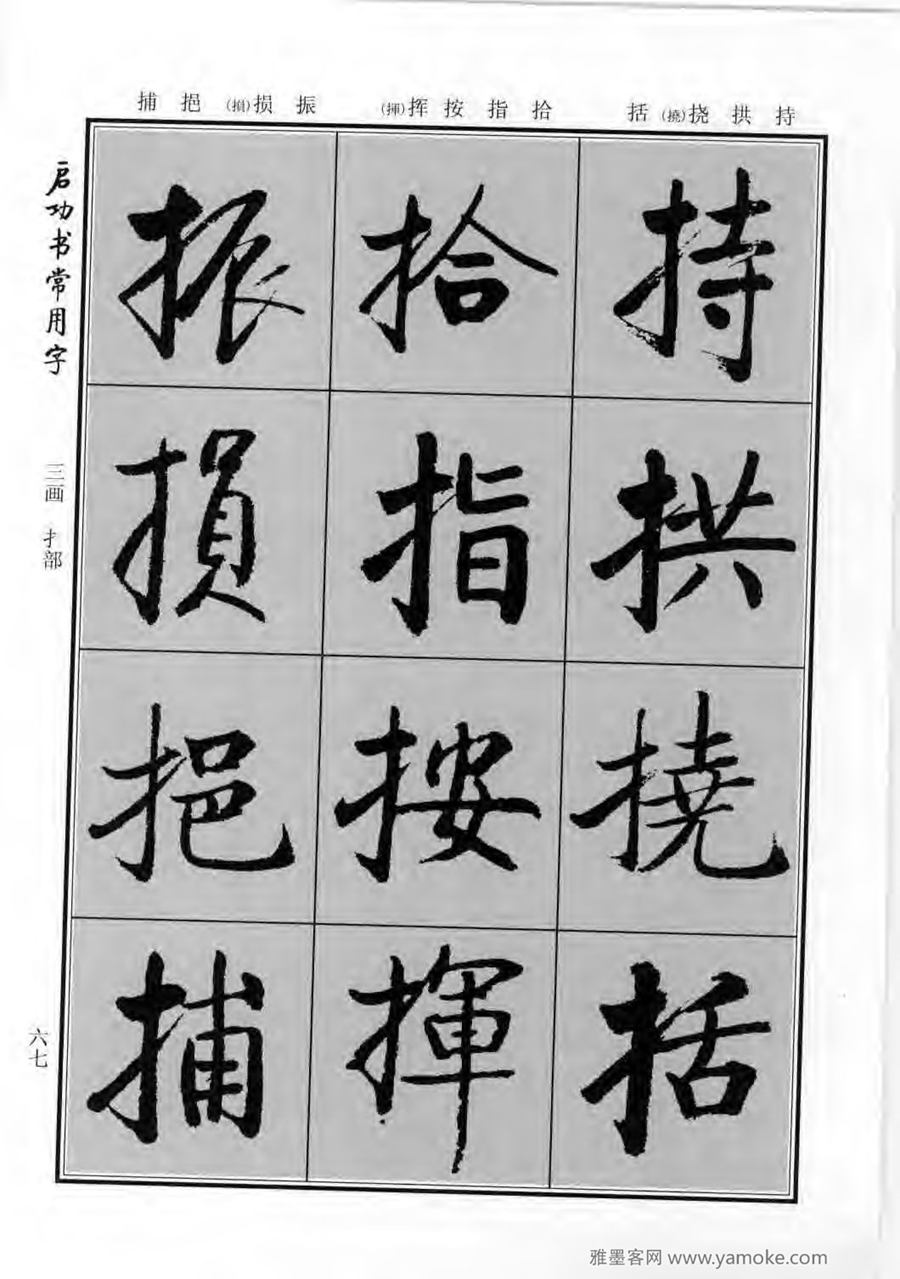 持 拱 挠(撓) 括
拾 指 按 挥(揮)
振 损(損) 挹 捕
持
拱
撓
括
拾
指
按
揮
振
損
挹
捕
启功书常用字
三画 扌部
六七
雅墨客网 www.yamoke.com